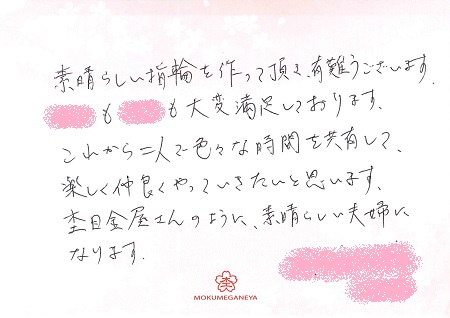 素晴らしい指輪を作って頂き、有難うございます。
も も大変満足しております。
これから二人で色々な時間を共有して、
楽しく仲良くやっていきたいと思います。
杢目金屋さんのように、素晴らしい夫婦に
なります。
杢
MOKUMEGANEYA